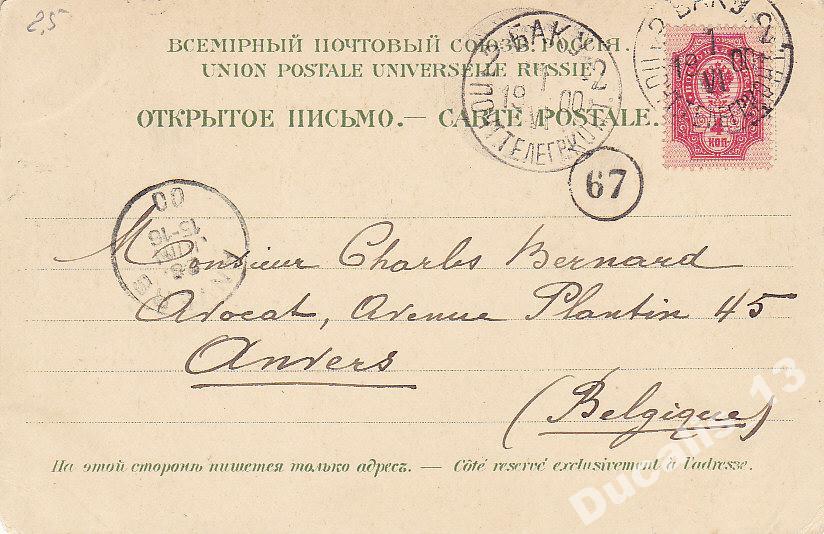 25
ВСЕМІРНЫЙ ПОЧТОВЫЙ СОЮЗЪ. РОССІЯ.
UNION POSTALE UNIVERSELLE RUSSIE
ОТКРЫТОЕ ПИСЬМО.—CARTE POSTALE.
БАКУ
1
VI
19 00
ПОЧТ. ТЕЛЕГР. КОНТ.
БАКУ
1
VI
19 00
4
КОП.
67
00
15-16
Monsieur Charles Bernard
Avocat, Avenue Plantin 45
Anvers
(Belgique)
На этой сторонѣ пишется только адресъ. — Côté reservé exclusivement à l'adresse.
Ducalis_13